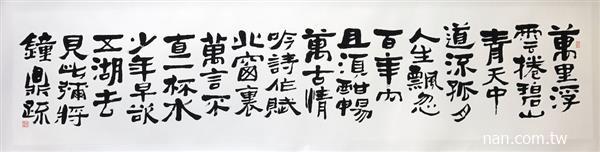 萬里浮
雲捲碧山
青天中
道流孤月
人生飄忽
百年內
且須酣暢
萬古情
吟詩作賦
北窗裏
萬言不
直一杯水
少年早欲
五湖去
見此彌將
鐘鼎疏
nan.com.tw